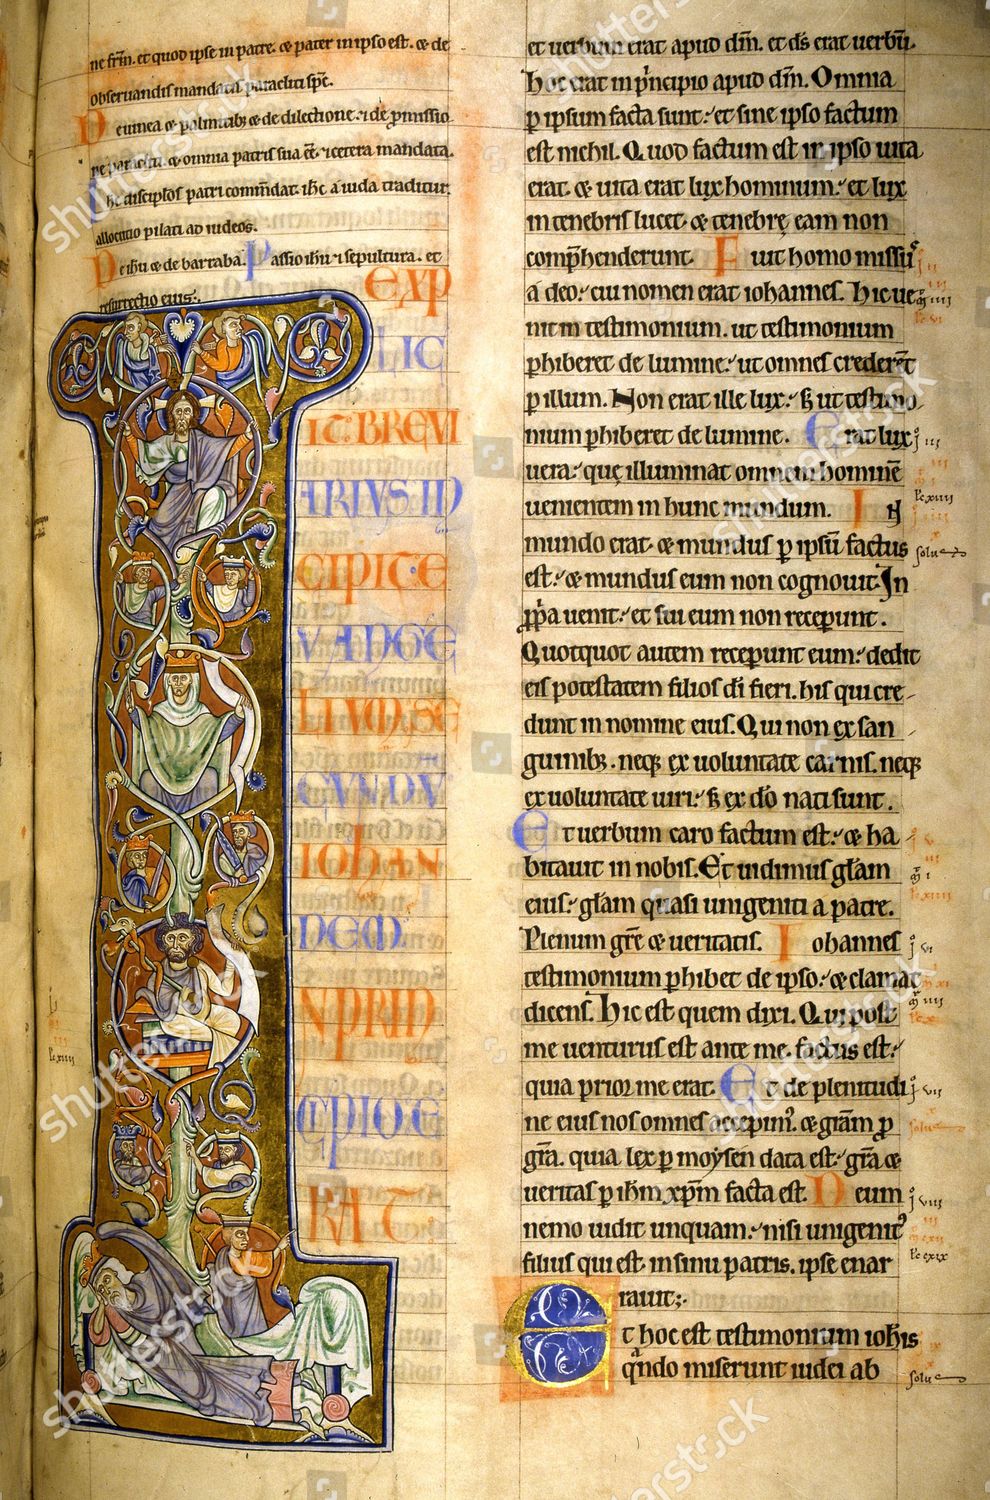 ne frm̄. et quod ipse in patre. & pater in ipso est. & de
obseruandis mandatis paracliti sp̄c.
De uinea & palmitib; & de dilectione. & de p̄missio
ne paracliti. & omnia patris sua eē. & cetera mandata.
Ihc discip̄los patri commēdat. ihc a iuda traditur
allocutio pilati ad iudeos.
De ihū & de barraba. Passio ihū & sepultura. et
resurrectio eius.
EXP
LIC
IT BREVI
ARIVS IN
CIPIT E
VANGE
LIVM SE
CVNDV
IOHAN
NEM.
N PRIN
CIPIO E
RAT
et uerbum erat apud dm̄. et ds̄ erat uerbū.
Hoc erat in p̄ncipio apud dm̄. Omnia
p ipsum facta sunt: et sine ipso factum
est nichil. Quod factum est in ipso uita
erat. & uita erat lux hominum: et lux
in tenebris lucet. & tenebrę eam non
comp̄henderunt. Fuit homo missuſ
a deo: cui nomen erat iohannes. Hic ue
nit in testimonium. ut testimonium
phiberet de lumine: ut omnes crederēt
p illum. Non erat ille lux: s; ut testimo
nium phiberet de lumine. Erat lux
uera: que illuminat omnem hominē
uenientem in hunc mundum. IN
mundo erat. & mundus p ipsū factus
est: & mundus eum non cognouit. In
pp̄a uenit: et sui eum non receperunt.
Quotquot autem receperunt eum: dedit
eis potestatem filios dī fieri. his qui cre-
dunt in nomine eius. Qui non ex san
guinib;. neq; ex uoluntate carnis. neq;
ex uoluntate uiri: s; ex dō nati sunt.
Et uerbum caro factum est: & ha
bitauit in nobis. Et uidimus glām
eius: glām quasi unigeniti a patre.
Plenum grē & ueritatis. Iohannes
testimonium phibet de ipso: & clamat
dicens. Hic est quem dixi. Qui post
me uenturus est ante me factus est:
quia prior me erat. Et de plenitudi
ne eius nos omnes accepim'. & grām p
grā. quia lex p moysen data est: grā &
ueritas p ihm xpm facta est. Deum
nemo uidit unquam: nisi unigenit'
filius qui est in sinu patris. ipse enar
rauit;
Et hoc est testimonium iohis
qndo miserunt iudei ab
solus
solus
shutterstock